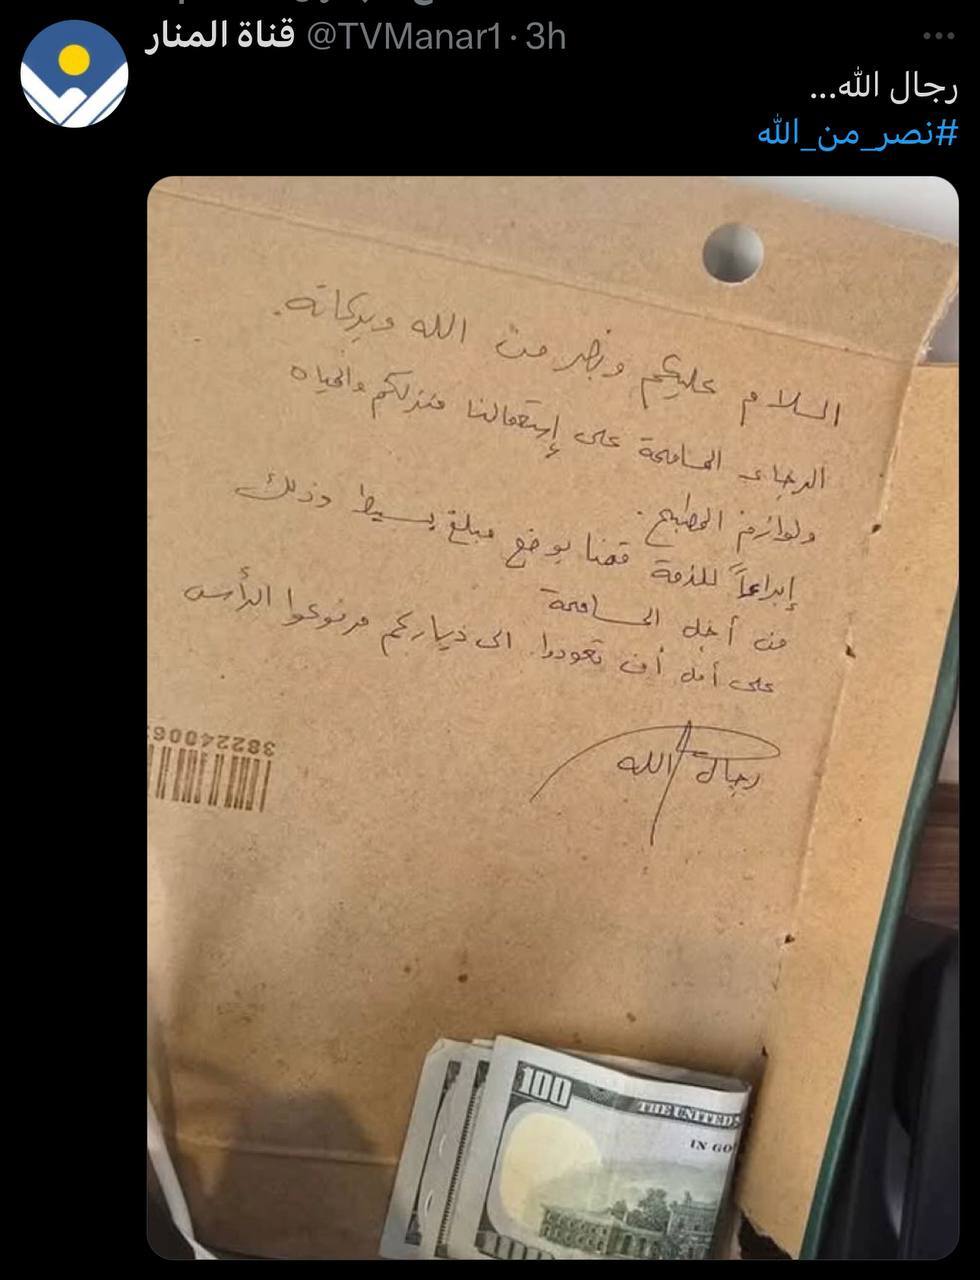 قناة المنار @TVManar1 · 3h
رجال الله...
#نصر_من_الله
السلام عليكم ونصر من الله وبركاته.
الرجاء المسامحة على إستعمالنا منزلكم والمياه
ولوازم المطبخ.
إبراءاً للذمة قمنا بوضع مبلغ بسيط وذلك
من أجل المسامحة
على أمل أن تعودوا الى دياركم مرفوعوا الرأس
رجال الله
38224006
100
THE UNITED
IN GO